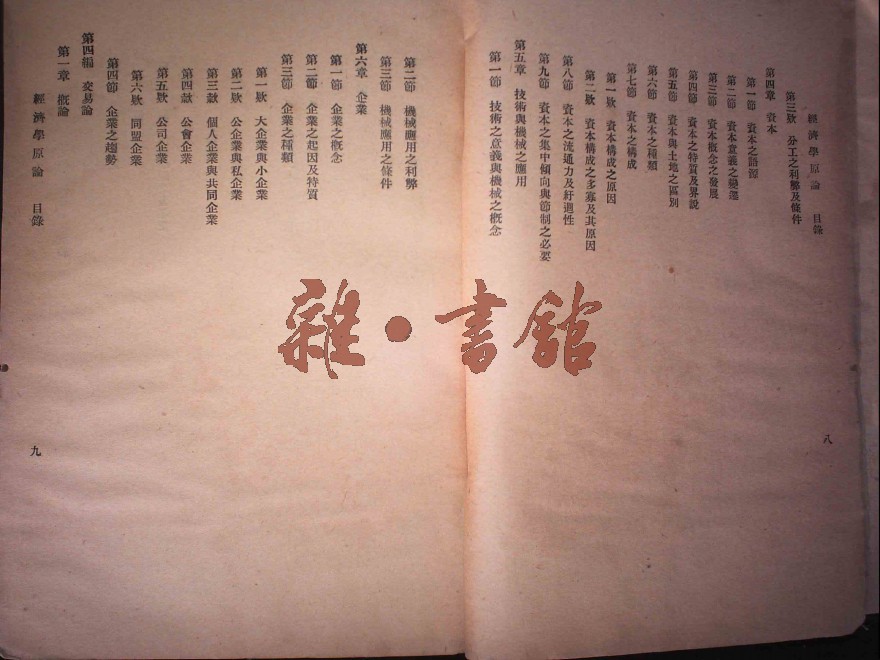 經濟學原論 目錄
第三欵 分工之利弊及條件
第四章 資本
第一節 資本之語源
第二節 資本意義之變遷
第三節 資本概念之發展
第四節 資本之特質及界說
第五節 資本與土地之區別
第六節 資本之種類
第七節 資本之構成
第一欵 資本構成之原因
第二欵 資本構成之多寡及其原因
第八節 資本之流通力及紆迴性
第九節 資本之集中傾向與節制之必要
第五章 技術與機械之應用
第一節 技術之意義與機械之概念
八
第二節 機械應用之利弊
第三節 機械應用之條件
第六章 企業
第一節 企業之概念
第二節 企業之起因及特質
第三節 企業之種類
第一欵 大企業與小企業
第二欵 公企業與私企業
第三欵 個人企業與共同企業
第四欵 公會企業
第五欵 公司企業
第六欵 同盟企業
第四節 企業之趨勢
第四編 交易論
第一章 概論
經濟學原論 目錄
九
雜·書館